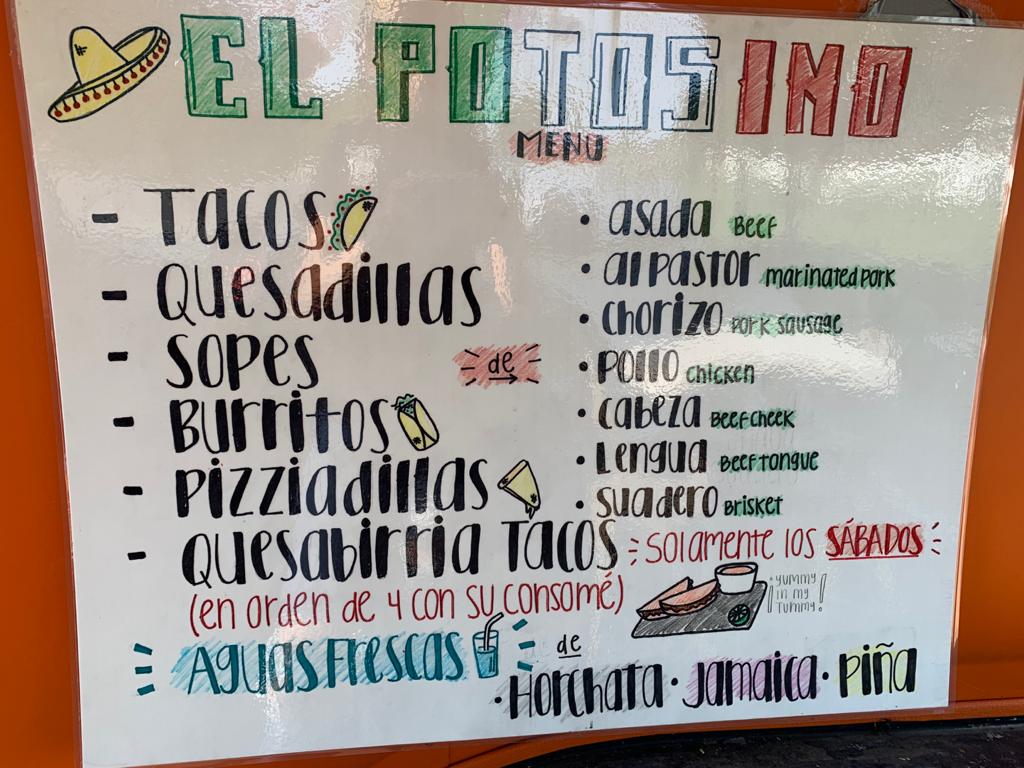 EL POTOSINO
MENU
- Tacos
- Quesadillas
- Sopes
- Burritos
- Pizziadillas
- Quesabirria Tacos
(en orden de 4 con su consomé)
de
• asada Beef
• al pastor marinated pork
• chorizo pork sausage
• pollo chicken
• cabeza Beef cheek
• Lengua Beef tongue
• suadero Brisket
solamente los SÁBADOS
yummy
in my
tummy!
Aguas Frescas
de
• Horchata • Jamaica • Piña